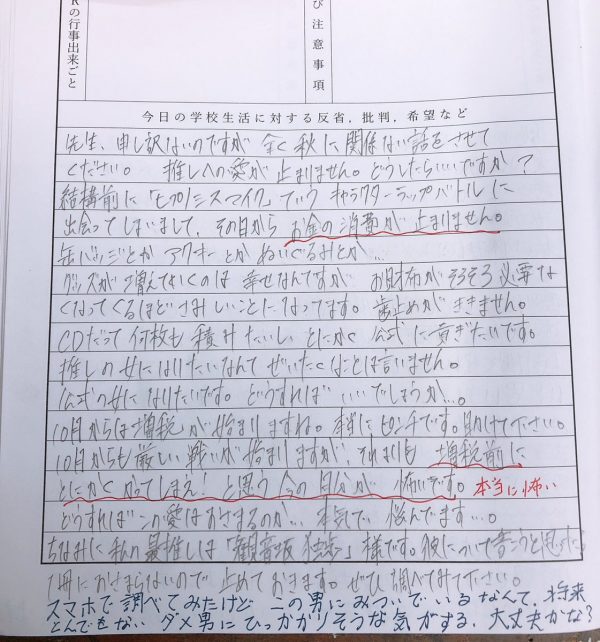 Rの行事出来ごと
び注意事項
今日の学校生活に対する反省，批判，希望など
先生、申し訳ないのですが 全く秋に関係ない話をさせて
ください。 推しへの愛が止まりません。どうしたらいいですか？
結構前に「ヒプノシスマイク」ていう キャラクターラップバトルに
出会ってしまいまして、その日から お金の消費が止まりません。
缶バッジとか アクキーとか ぬいぐるみとか…
グッズが増えていくのは 幸せなんですが お財布がそろそろ必要な
くなってくるほどさみしいことになってます。歯止めがききません。
CDだって何枚も積みたいし、とにかく 公式に貢ぎたいです。
推しの女になりたいなんて ぜいたくなことは言いません。
公式の女になりたいです。どうすれば いいでしょうか…。
10月からは増税が始まりますね。本当にピンチです。助けて下さい。
10月からも厳しい戦いが始まりますが、それよりも 増税前に
とにかくかってしまえ！と思う今の自分が 怖いです。 本当に怖い
どうすればこの愛はおさまるのか… 本気で 悩んでます…。
ちなみに私の最推しは「観音坂 独歩」様です。彼について書こうと思ったら
1冊におさまらないので 止めておきます。ぜひ調べてみて下さい。
スマホで調べてみたけど この男にみついでいるなんて、将来
とんでもない ダメ男にひっかかりそうな気がする。大丈夫かな？